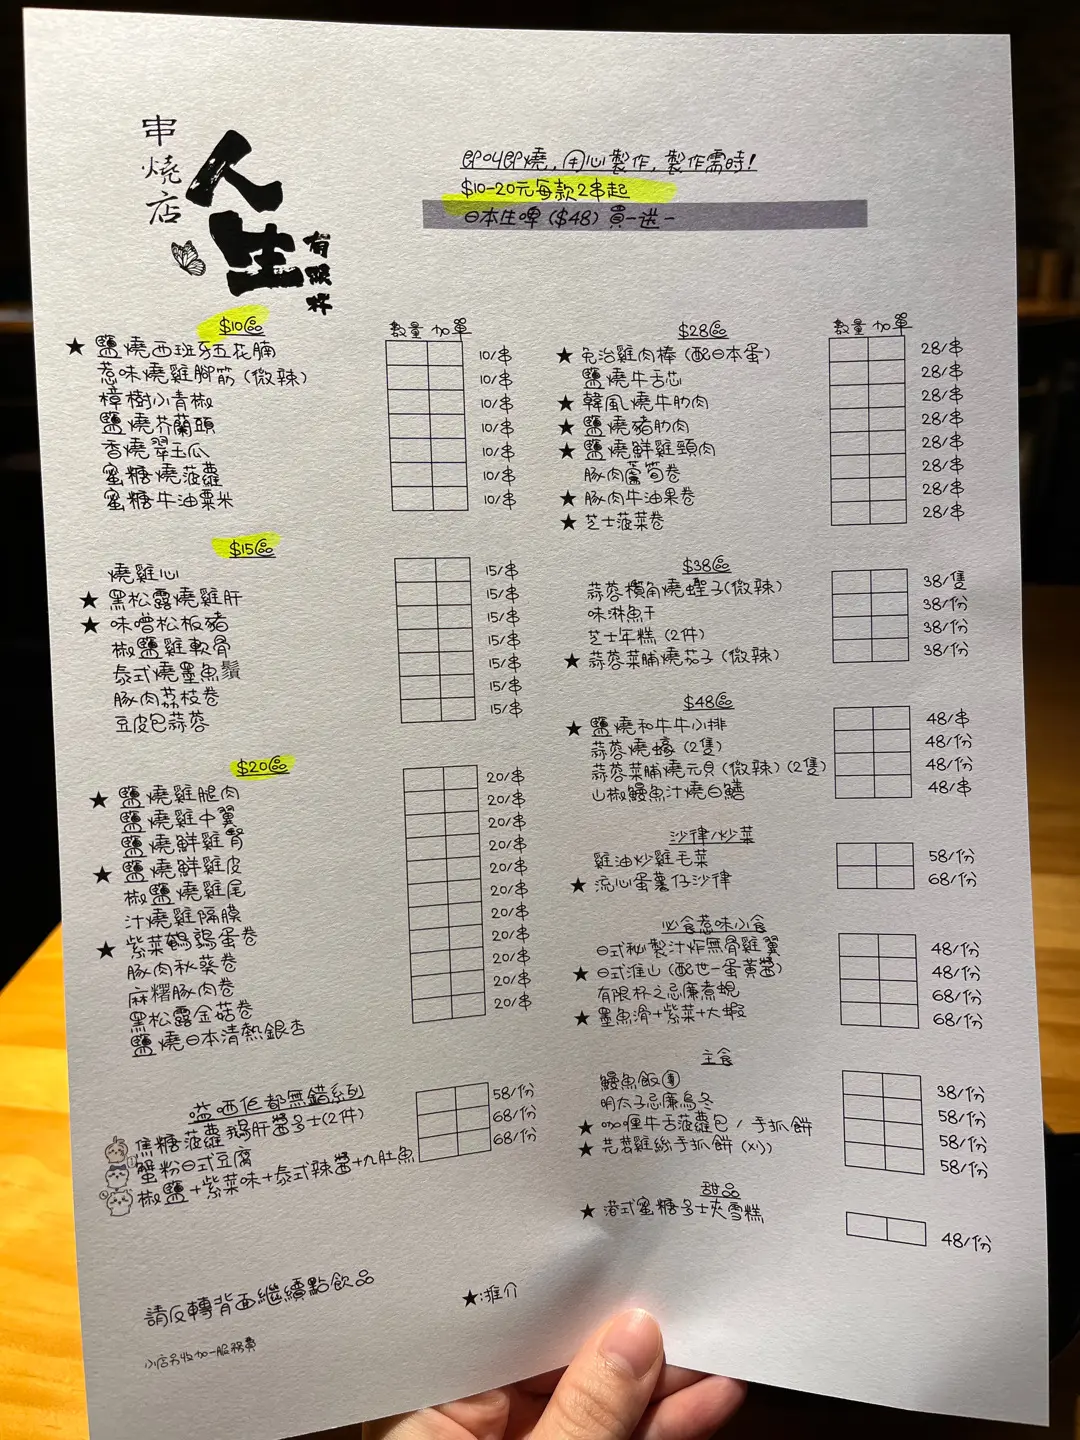 串燒店
人生
有限杯
即叫即燒，用心製作，製作需時！
$10-20元每款2串起
日本生啤 ($48) 買一送一
$10區
數量 加單
★ 鹽燒西班牙五花腩 10/串
惹味燒雞腳筋 (微辣) 10/串
樟樹小青椒 10/串
鹽燒芥蘭頭 10/串
香燒翠玉瓜 10/串
蜜糖燒菠蘿 10/串
蜜糖牛油粟米 10/串
$15區
燒雞心 15/串
★ 黑松露燒雞肝 15/串
★ 味噌松板豬 15/串
椒鹽雞軟骨 15/串
泰式燒墨魚鬚 15/串
豚肉荔枝卷 15/串
豆皮包蒜蓉 15/串
$20區
★ 鹽燒雞腿肉 20/串
鹽燒雞中翼 20/串
鹽燒鮮雞腎 20/串
★ 鹽燒鮮雞皮 20/串
椒鹽燒雞尾 20/串
汁燒雞隔膜 20/串
★ 紫菜鵪鶉蛋卷 20/串
豚肉秋葵卷 20/串
麻糬豚肉卷 20/串
黑松露金菇卷 20/串
鹽燒日本清熱銀杏 20/串
嗌晒佢都無錯系列
焦糖菠蘿鵝肝醬多士(2件) 58/份
蟹粉日式豆腐 68/份
椒鹽+紫菜味+泰式辣醬+九肚魚 68/份
請反轉背面繼續點飲品
小店另收加一服務費
$28區
數量 加單
★ 免治雞肉棒 (配日本蛋) 28/串
鹽燒牛舌芯 28/串
★ 韓風燒牛肋肉 28/串
★ 鹽燒豬肋肉 28/串
★ 鹽燒鮮雞頸肉 28/串
豚肉蘆筍卷 28/串
★ 豚肉牛油果卷 28/串
★ 芝士菠菜卷 28/串
$38區
蒜蓉欖角燒蟶子(微辣) 38/隻
味淋魚干 38/份
芝士年糕 (2件) 38/份
★ 蒜蓉菜脯燒茄子 (微辣) 38/份
$48區
★ 鹽燒和牛牛小排 48/串
蒜蓉燒蠔 (2隻) 48/份
蒜蓉菜脯燒元貝 (微辣) (2隻) 48/份
山椒鰻魚汁燒白鱔 48/串
沙律/炒菜
雞油炒雞毛菜 58/份
★ 流心蛋薯仔沙律 68/份
必食惹味小食
日式秘製汁炸無骨雞翼 48/份
★ 日式淮山 (配世一蛋黃醬) 48/份
有限杯之忌廉煮蜆 68/份
★ 墨魚滑+紫菜+大蝦 68/份
主食
鰻魚飯 38/份
明太子忌廉烏冬 58/份
★ 咖哩牛舌菠蘿包 / 手抓餅 58/份
★ 芫荽雞絲手抓餅 (x1) 58/份
甜品
★ 港式蜜糖多士夾雪糕 48/份
★:推介